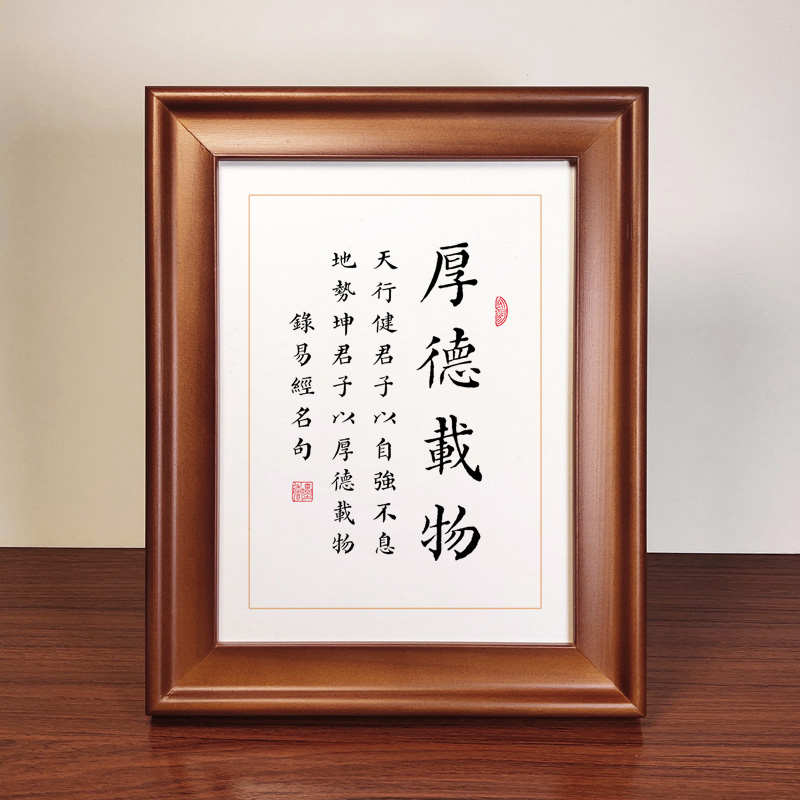 厚德載物
天行健君子以自強不息
地勢坤君子以厚德載物
錄易經名句